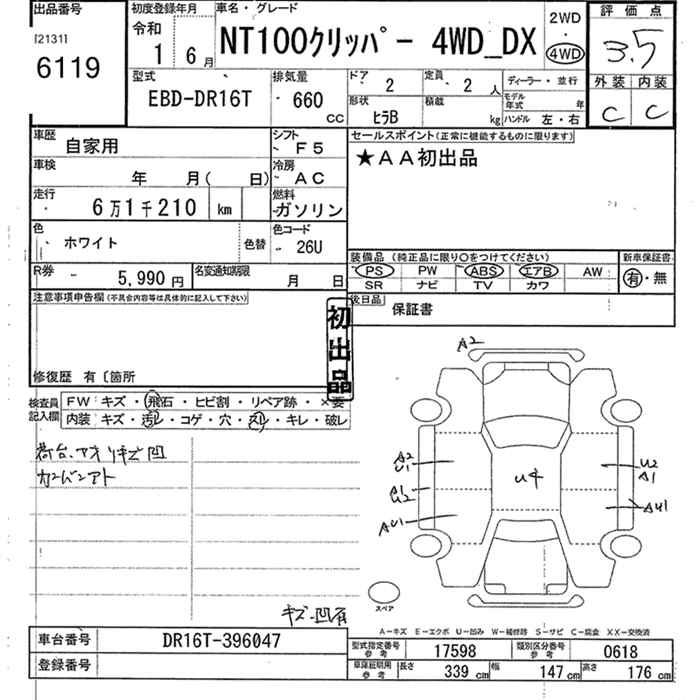 出品番号
[2131]
6119
初度登録年月
令和
1 6月
車名・グレード
NT100クリッパー 4WD_DX
2WD
・
4WD
評価点
3.5
外装 内装
C C
型式
EBD-DR16T
排気量
660
CC
ドア
2
定員
2 人
形状
ヒラB
積載
kg
ディーラー・並行
モデル年式 年
ハンドル 左・右
車歴
自家用
シフト
F5
車検
年 月( 日)
冷房
AC
走行
6万1千210 km
燃料
ガソリン
色
ホワイト
色替
色コード
26U
R券
5,990円
名変通知期限
月 日
セールスポイント(正常に機能するものに限ります)
★AA初出品
装備品 (純正品に限り○をつけてください)
PS PW ABS エアB AW
SR ナビ TV カワ
新車保証書
有・無
後日品
保証書
注意事項申告欄(不具合内容等は具体的に記入して下さい)
初出品
修復歴 有〔箇所
検査員記入欄
FW キズ・飛石・ヒビ割・リペア跡・×要
内装 キズ・汚レ・コゲ・穴・スレ・キレ・破レ
荷台、アオリキズ凹
カンバンアト
キズ・凹有
A2
A2
U1
A1
U2
AU1
U4
U2
A1
AU1
スペア
A－キズ E－エクボ U－凹み W－補修跡 S－サビ C－腐食 XX－交換済
車台番号
DR16T-396047
登録番号
型式指定番号
参考
17598
類別区分番号
参考
0618
車庫証明用
参考
長さ
339 cm
幅
147 cm
高さ
176 cm